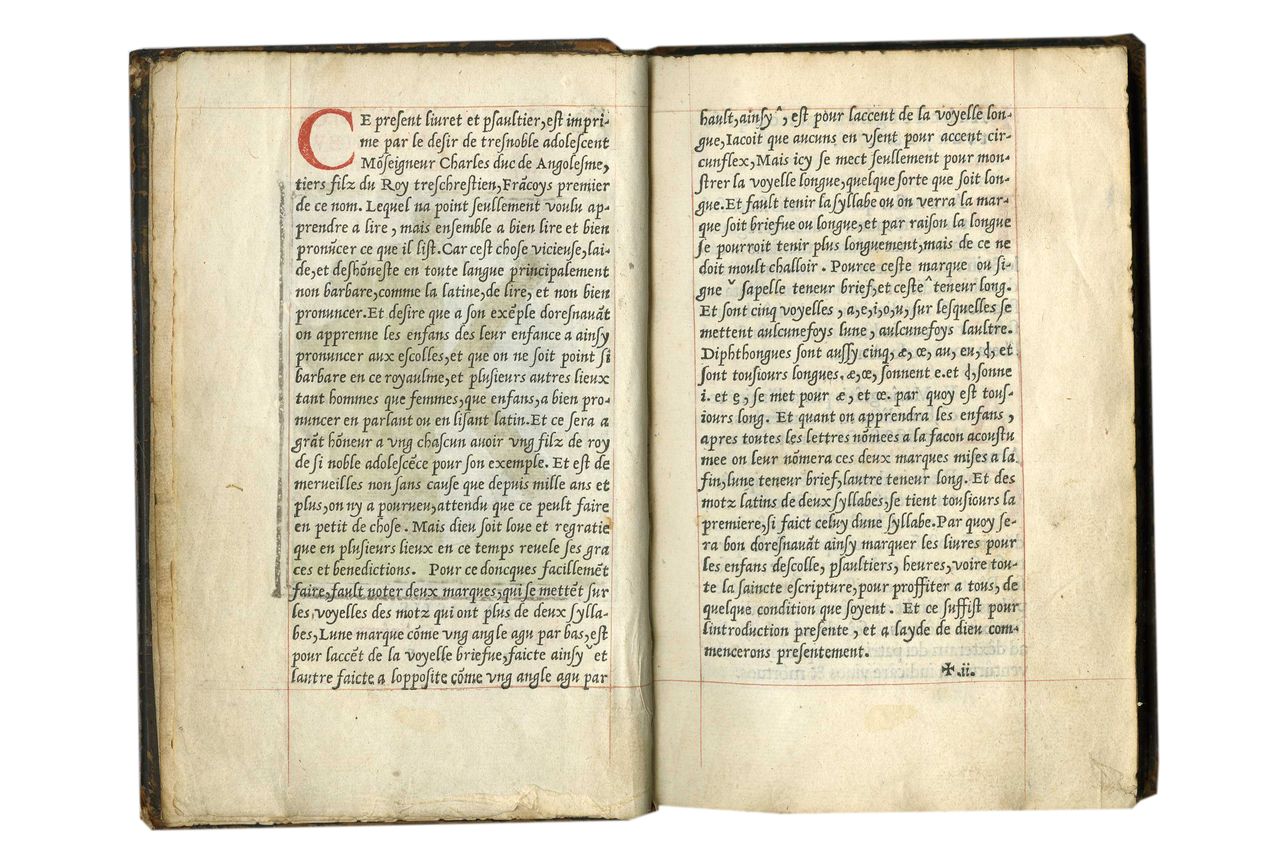 CE preſent liuret et pſaultier, eſt impri-
me par le deſir de treſnoble adoleſcent
Mõſeigneur Charles duc de Angoleſme,
tiers filz du Roy treſchreſtien, Frãcoys premier
de ce nom. Lequel na point ſeullement voulu ap-
prendre a lire, mais enſemble a bien lire et bien
pronũcer ce que il liſt. Car ceſt choſe vicieuſe, lai-
de, et deſhõneſte en toute langue principalement
non barbare, comme la latine, de lire, et non bien
pronuncer. Et deſire que a ſon exẽple doreſnauãt
on apprenne les enfans des leur enfance a ainſy
pronuncer aux eſcolles, et que on ne ſoit point ſi
barbare en ce royaulme, et pluſieurs autres lieux
tant hommes que femmes, que enfans, a bien pro-
nuncer en parlant ou en liſant latin. Et ce ſera a
grãt hõneur a vng chaſcun auoir vng filz de roy
de ſi noble adoleſcẽce pour ſon exemple. Et eſt de
merueilles non ſans cauſe que depuis mille ans et
plus, on ny a pourueu, attendu que ce peult faire
en petit de choſe. Mais dieu ſoit loue et regratie
que en pluſieurs lieux en ce temps reuele ſes gra
ces et benedictions. Pour ce doncques facillemẽt
faire, fault noter deux marques, qui ſe mettẽt ſur
les voyelles des motz qui ont plus de deux ſylla-
bes, Lune marque cõme vng angle agu par bas, eſt
pour laccẽt de la voyelle briefue, faicte ainſy ˇ et
lautre faicte a loppoſite cõme vng angle agu par
hault, ainſy ˆ, eſt pour laccent de la voyelle lon-
gue, Iacoit que aucuns en vſent pour accent cir-
cunflex, Mais icy ſe mect ſeullement pour mon-
ſtrer la voyelle longue, quelque ſorte que ſoit lon-
gue. Et fault tenir la ſyllabe ou on verra la mar-
que ſoit briefue ou longue, et par raiſon la longue
ſe pourroit tenir plus longuement, mais de ce ne
doit moult challoir. Pource ceſte marque ou ſi-
gne ˇ ſapelle teneur brief, et ceſte ˆ teneur long.
Et ſont cinq voyelles, a, e, i, o, u, ſur leſquelles ſe
mettent aulcunefoys lune, aulcunefoys laultre.
Diphthongues ſont auſſy cinq, æ, œ, au, eu, et
ſont touſiours longues. æ, œ, ſonnent e. et ſonne
i. et ę, ſe met pour æ, et œ. par quoy eſt touſ-
iours long. Et quant on apprendra les enfans,
apres toutes les lettres nõmees a la facon acouſtu
mee on leur nõmera ces deux marques miſes a la
fin, lune teneur brief, lautre teneur long. Et des
motz latins de deux ſyllabes, ſe tient touſiours la
premiere, ſi faict celuy dune ſyllabe. Par quoy ſe-
ra bon doreſnauãt ainſy marquer les liures pour
les enfans deſcolle, pſaultiers, heures, voire tou-
te la ſaincte eſcripture, pour proffiter a tous, de
quelque condition que ſoyent. Et ce ſuffiſt pour
lintroduction preſente, et a layde de dieu com-
mencerons preſentement.
✠.ii.